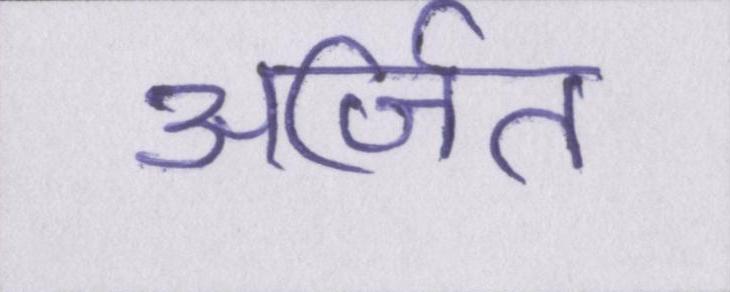 अर्जित